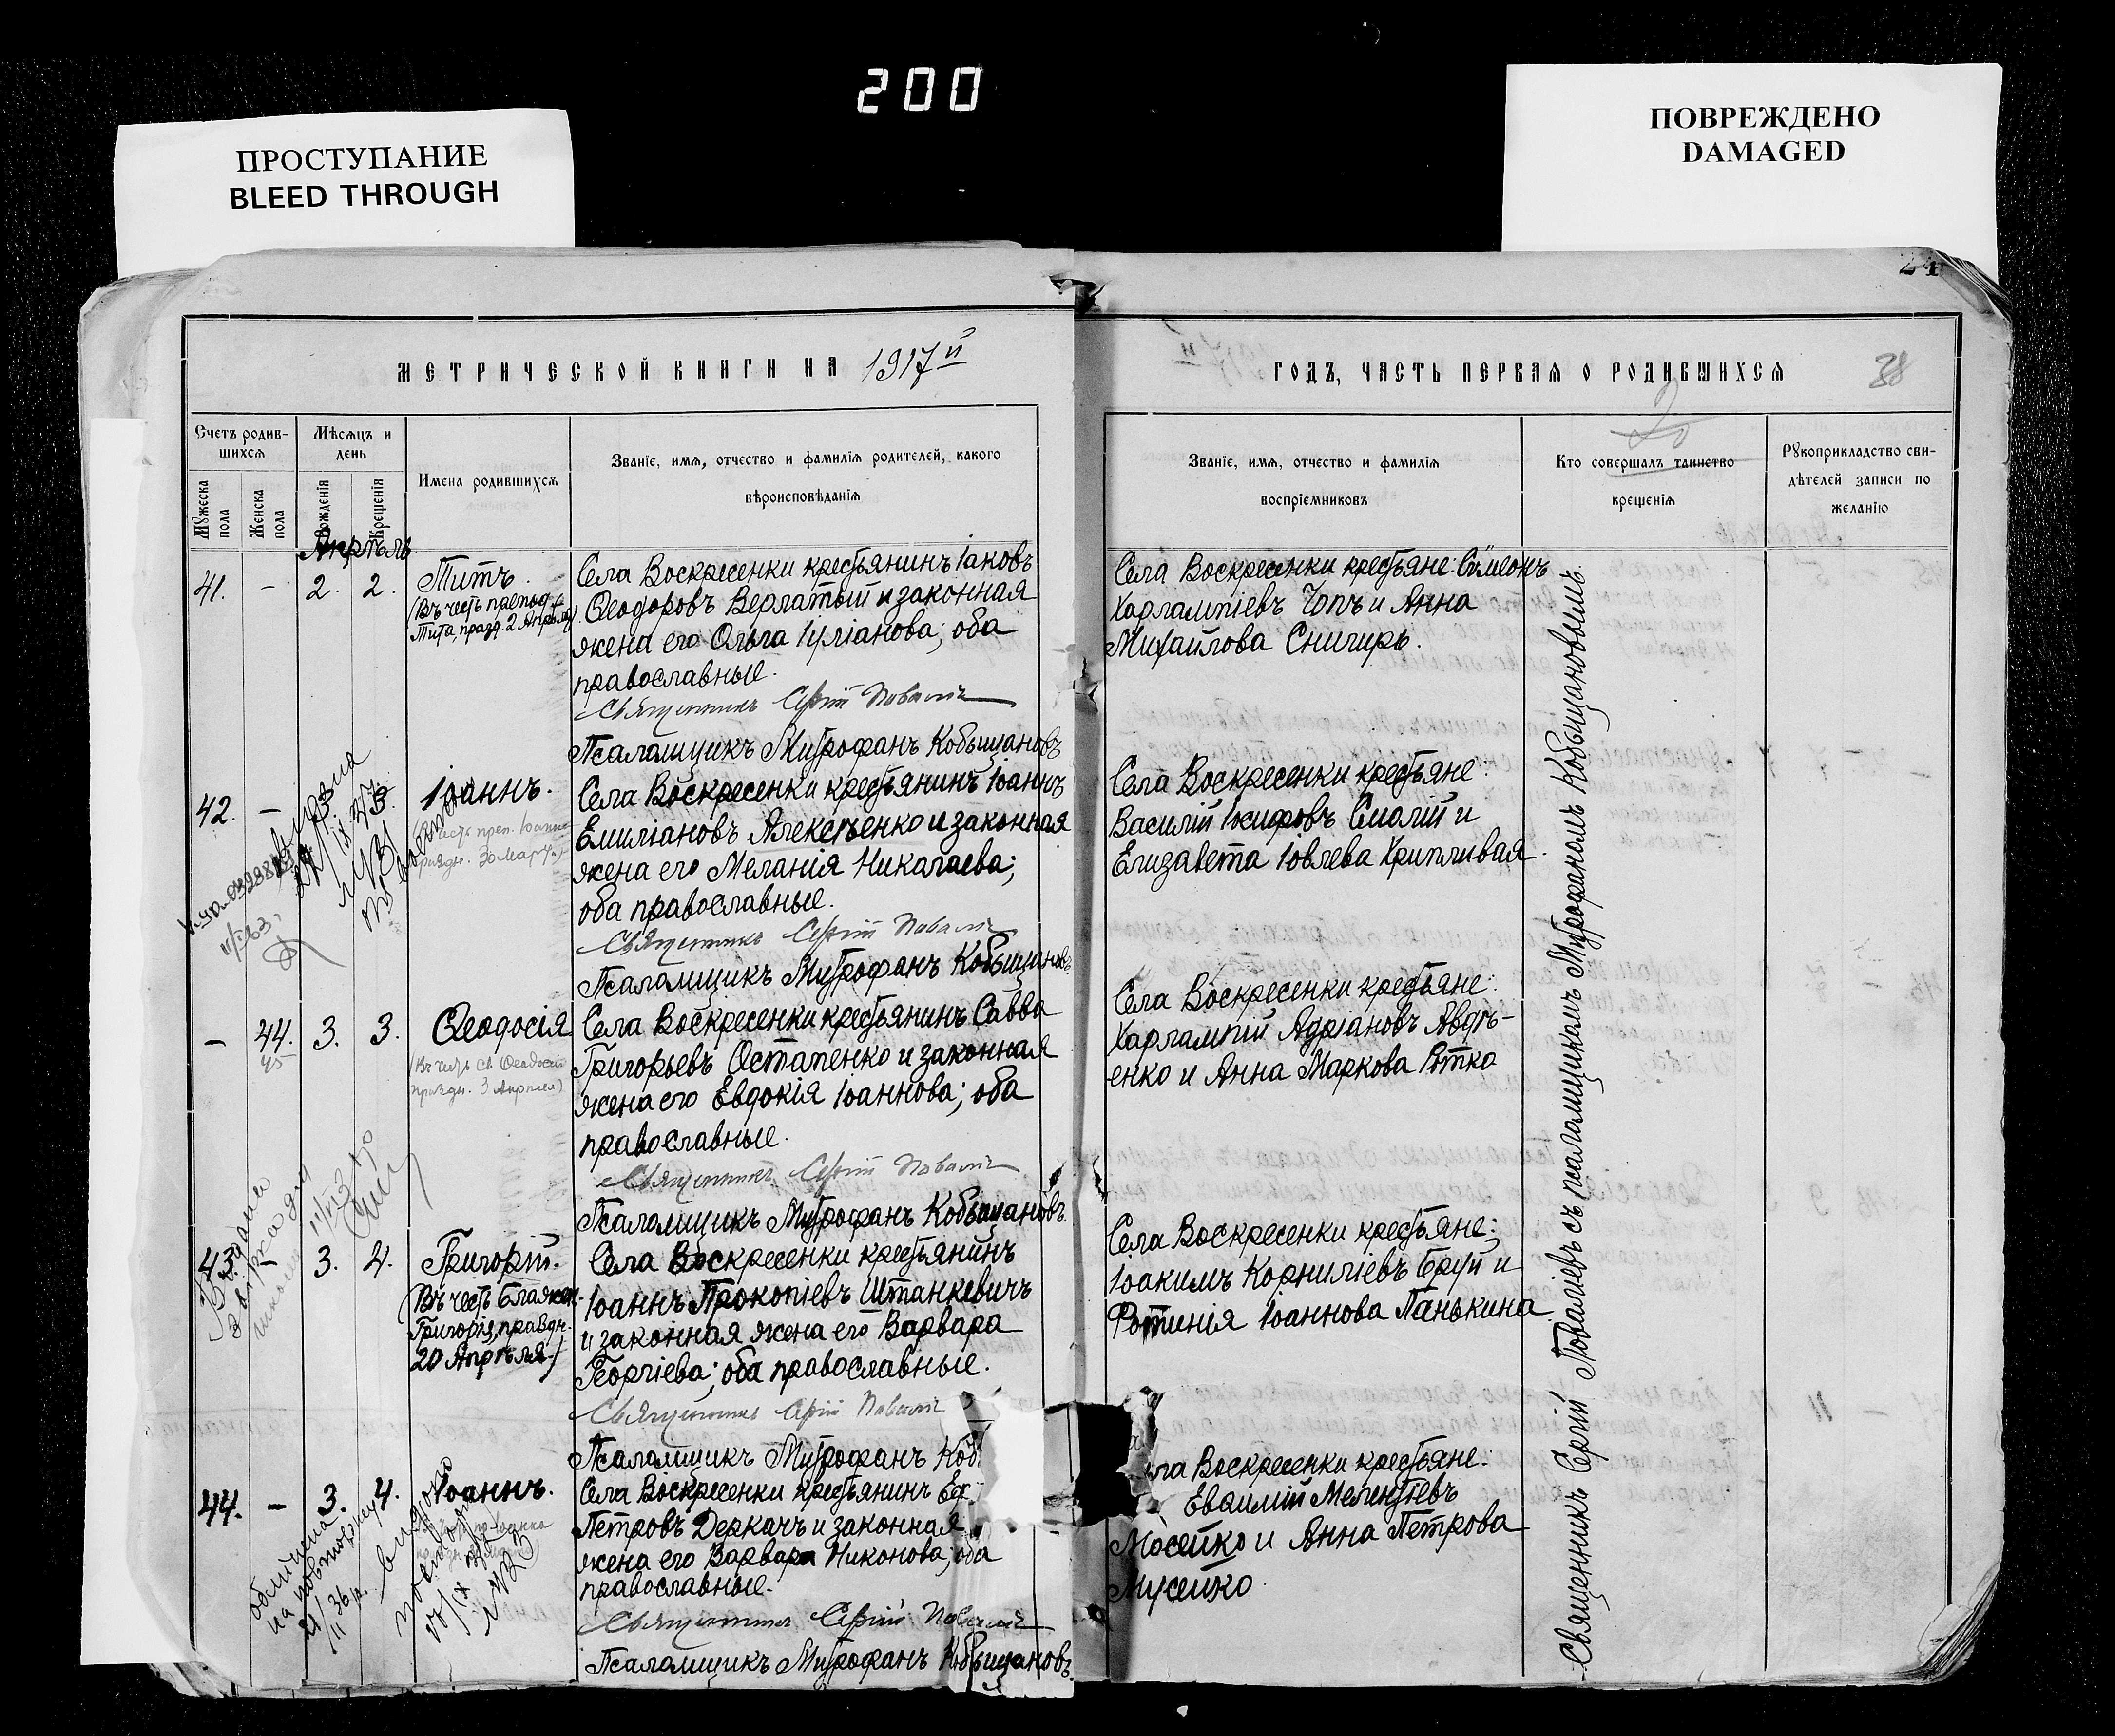 200
ПРОСТУПАНИЕ
BLEED THROUGH
ПОВРЕЖДЕНО
DAMAGED
24
МЕТРИЧЕСКОЙ КНИГИ НА 1917й
ГОДЪ, ЧАСТЬ ПЕРВАЯ О РОДИВШИХСЯ
38
Счетъ родив-
шихся
Мужеска пола
Женска пола
Мѣсяцъ и
день
Рожденія
Крещенія
Имена родившихся
Званіе, имя, отчество и фамилія родителей, какого
вѣроисповѣданія
Званіе, имя, отчество и фамилія
воспріемниковъ
Кто совершалъ таинство
крещенія
Рукоприкладство сви-
дѣтелей записи по
желанію
Апрѣль
41. - 2. 2.
Титъ.
(Въ честь препод.
Тита, празд. 2 Апрѣля)
Села Воскресенки крестьянинъ Іаковъ
Ѳеодоровъ Верлатый и законная
жена его Ольга Іуліанова; оба
православные.
Священникъ Сергій Поваліевъ
Псаломщикъ Митрофанъ Кобыщановъ
Села Воскресенки крестьяне: Сѵмеонъ
Харлампіевъ Чопъ и Анна
Михайлова Снигирь.
42. - 3. 3.
Іоаннъ.
(Въ честь преп. Іоанна
праздн. 30 Марта)
Села Воскресенки крестьянинъ Іоаннъ
Емиліановъ Алексѣенко и законная
жена его Меланія Николаева;
оба православные.
Священникъ Сергій Поваліевъ
Псаломщикъ Митрофанъ Кобыщановъ
Села Воскресенки крестьяне:
Василій Іосифовъ Смолій и
Елизавета Іовлева Хрипливая.
- 44. 3. 3.
45
Ѳеодосія
(Въ честь св. Ѳеодосіи
праздн. 3 Апреля)
Села Воскресенки крестьянинъ Савва
Григорьевъ Остапенко и законная
жена его Евдокія Іоаннова; оба
православные.
Священникъ Сергій Поваліевъ
Псаломщикъ Митрофанъ Кобыщановъ.
Села Воскресенки крестьяне:
Харлампій Адріановъ Авдѣ-
енко и Анна Маркова Ротка
43. - 3. 4.
Григорій.
(Въ честь Блажен.
Григорія, праздн.
20 Апрѣля.)
Села Воскресенки крестьянинъ
Іоаннъ Прокопіевъ Штанкевичъ
и законная жена его Варвара
Георгіева; оба православные.
Священникъ Сергій Поваліевъ
Псаломщикъ Митрофанъ Коб
Села Воскресенки крестьяне:
Іоакимъ Корниліевъ Бруй и
Фотинія Іоаннова Панькина
44. - 3. 4.
Іоаннъ.
Села Воскресенки крестьянинъ
Петровъ Деркачъ и законная
жена его Варвара Никонова; оба
православные.
Священникъ Сергій Поваліевъ
Псаломщикъ Митрофанъ Кобыщановъ.
ла Воскресенки крестьяне:
Евѳимій Мелентіевъ
Мосейко и Анна Петрова
Мусейко.
Священникъ Сергій Поваліевъ съ псаломщикомъ Митрофаномъ Кобыщановымъ.